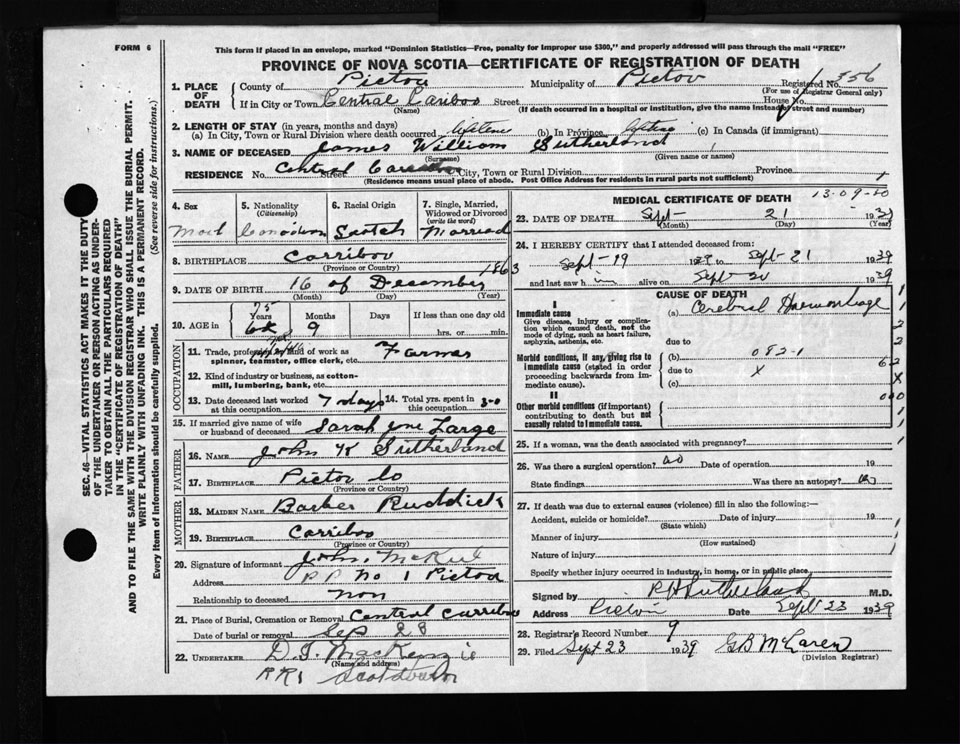 FORM 6
This form if placed in an envelope, marked "Dominion Statistics—Free, penalty for improper use $300," and properly addressed will pass through the mail "FREE"
PROVINCE OF NOVA SCOTIA—CERTIFICATE OF REGISTRATION OF DEATH
SEC. 46—VITAL STATISTICS ACT MAKES IT THE DUTY
OF THE UNDERTAKER OR PERSON ACTING AS UNDER-
TAKER TO OBTAIN ALL THE PARTICULARS REQUIRED
IN THE "CERTIFICATE OF REGISTRATION OF DEATH"
AND TO FILE THE SAME WITH THE DIVISION REGISTRAR WHO SHALL ISSUE THE BURIAL PERMIT.
WRITE PLAINLY WITH UNFADING INK. THIS IS A PERMANENT RECORD.
Every item of information should be carefully supplied. (See reverse side for instructions.)
1. PLACE OF DEATH County of Pictou Municipality of Pictou Registered No. 356
(For use of Registrar General only)
If in City or Town Central Cariboo Street House No.
(Name) (If death occurred in a hospital or institution, give the name instead of street and number)
2. LENGTH OF STAY (in years, months and days)
(a) In City, Town or Rural Division where death occurred lifetime (b) In Province lifetime (c) In Canada (if immigrant)
3. NAME OF DECEASED James William Sutherland
(Surname) (Given name or names)
RESIDENCE No. Central Street City, Town or Rural Division Province
(Residence means usual place of abode. Post Office Address for residents in rural parts not sufficient)
4. Sex 5. Nationality (Citizenship) 6. Racial Origin 7. Single, Married, Widowed or Divorced (write the word)
Mail Canadian Scotch Married
8. BIRTHPLACE Carribou
(Province or Country)
9. DATE OF BIRTH 16 of December 1863
(Month) (Day) (Year)
10. AGE in Years Months Days If less than one day old
75 9 hrs. or min.
OCCUPATION
11. Trade, profession or kind of work as spinner, teamster, office clerk, etc. Farmer
12. Kind of industry or business, as cotton-mill, lumbering, bank, etc.
13. Date deceased last worked at this occupation 7 days 14. Total yrs. spent in this occupation
15. If married give name of wife or husband of deceased Sarah Jane Large
FATHER
16. NAME John K Sutherland
17. BIRTHPLACE Pictou Co
(Province or Country)
MOTHER
18. MAIDEN NAME Barber Ruddick
19. BIRTHPLACE Cariboo
(Province or Country)
20. Signature of informant John
Address RR No 1 Pictou
Relationship to deceased non
21. Place of Burial, Cremation or Removal Central Carribou
Date of burial or removal Sep 23
22. UNDERTAKER D. J. MacKenzie
(Name and address)
RR1
13-09-20
MEDICAL CERTIFICATE OF DEATH
23. DATE OF DEATH Sept 21 1939
(Month) (Day) (Year)
24. I HEREBY CERTIFY that I attended deceased from:
Sept-19 1939 to Sept-21 1939
and last saw h im alive on Sept 20 1939
CAUSE OF DEATH
I
Immediate cause
Give disease, injury or complication which caused death, not the mode of dying, such as heart failure, asphyxia, asthenia, etc.
(a) Cerebral Haemorrhage
due to
Morbid conditions, if any, giving rise to immediate cause (stated in order proceeding backwards from immediate cause).
(b) 082-1
due to X
(c)
II
Other morbid conditions (if important) contributing to death but not causally related to immediate cause.
25. If a woman, was the death associated with pregnancy?
26. Was there a surgical operation? no Date of operation 19
State findings Was there an autopsy? no
27. If death was due to external causes (violence) fill in also the following:—
Accident, suicide or homicide? Date of injury 19
(State which)
Manner of injury
(How sustained)
Nature of injury
Specify whether injury occurred in industry, in home, or in public place
Signed by R H Sutherland M.D.
Address Pictou Date Sept 23 1939
28. Registrar's Record Number 9
29. Filed Sept 23 1939 GB McLaren
(Division Registrar)